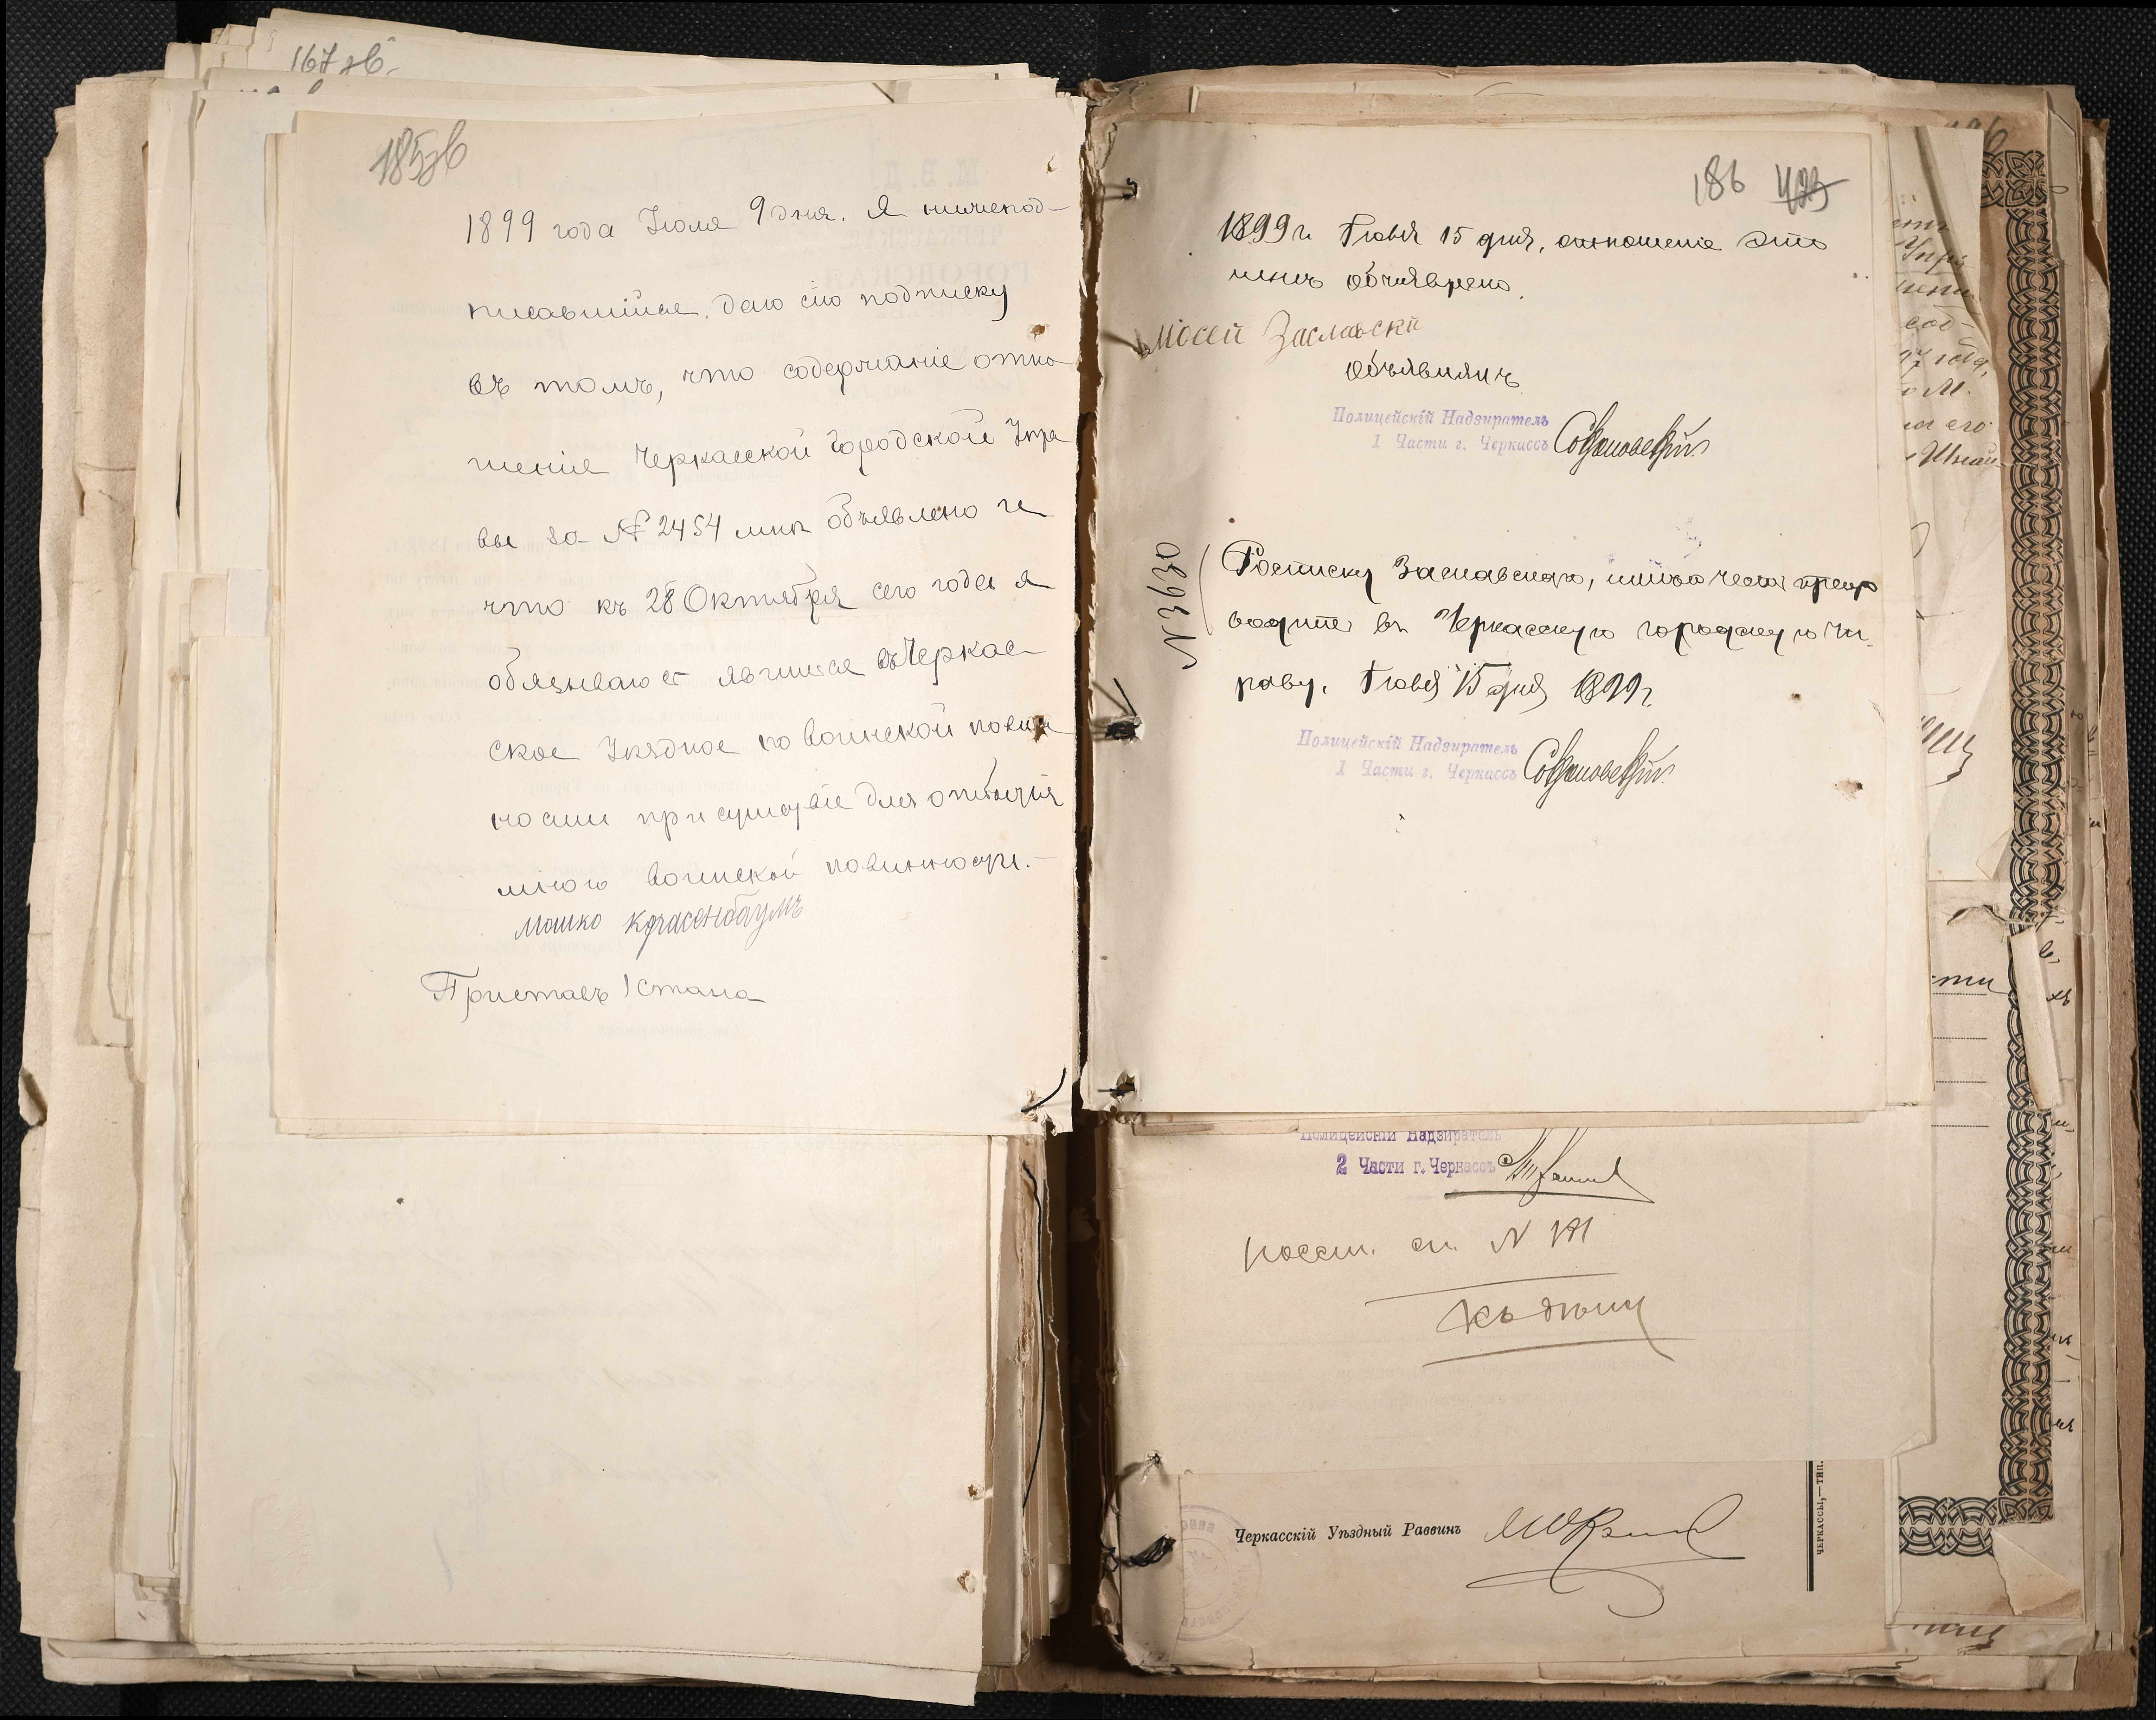 167 об.
185 об
1899 года Июля 9 дня. Я нижепод-
писавшийся, даю сію подписку
въ томъ, что содержаніе отно
шенія Черкасской Городской Упра
вы за № 2454 мнѣ объявлено и
что къ 28 Октября сего года я
обязываюсь явиться въ Черкас-
ское Уѣздное по воинской повин
ности присутствіе для отбытія
мною воинской повинности.-
Мошко
Приставъ 1 стана
186 423
1899 г. Іюля 15 дня, отношеніе это
мнѣ объявлено.
Мосей Заславскй
Объявилъ
Полицейскій Надзиратель
1 Части г. Черкассъ
№ 3630
Росписку Заславскаго, имѣю честь препро
водить въ Черкасскую городскую Уп-
раву. Іюля 15 дня 1899 г.
Полицейскій Надзиратель
1 Части г. Черкассъ
Полицейскій Надзиратель
2 Части г. Черкассъ
къ дѣлу
Черкасскій Уѣздный Раввинъ
ЧЕРКАССЫ,—ТИП.